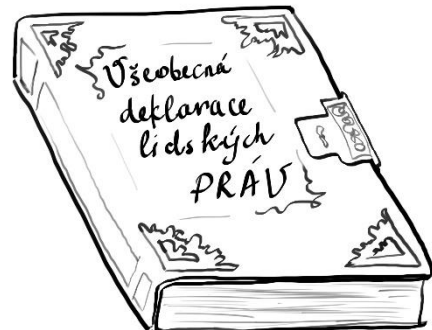 Všeobecná
deklarace
lidských
PRÁV